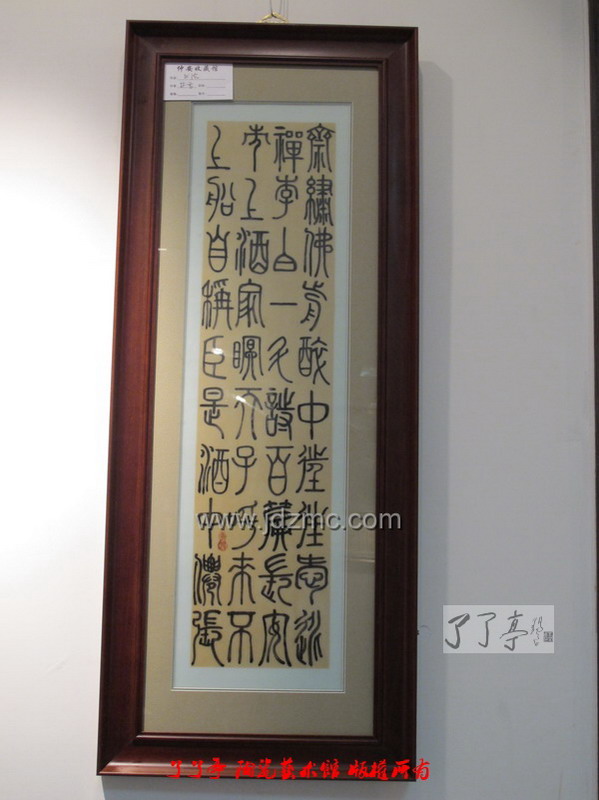 齋繡佛前醉中往往愛逃
禪李白一斗詩百篇長安
市上酒家眠天子呼來不
上船自稱臣是酒中僊張
www.jdzmc.com
了了亭
了了亭 陶瓷艺术馆 版權所有